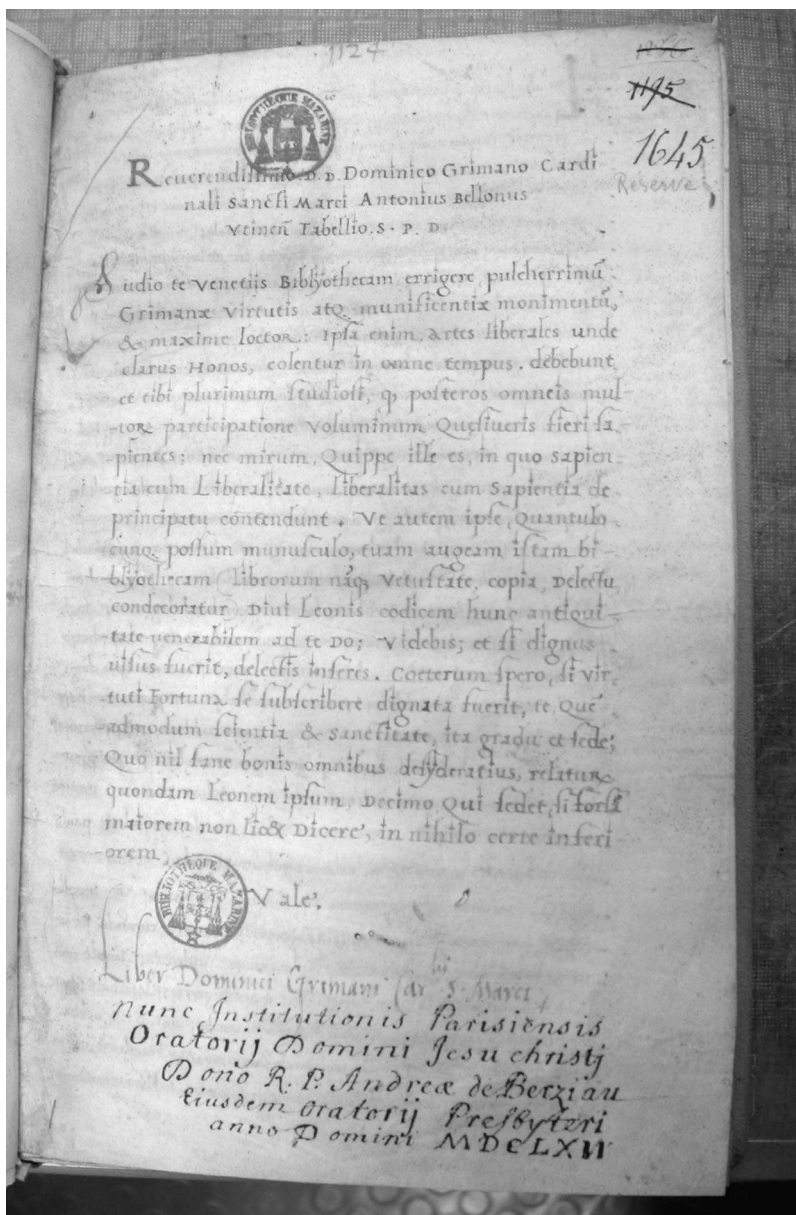 1124
1195
1645
Reserve
BIBLIOTHEQUE MAZARINE
Reuerendissimo. D. D. Dominico Grimano Cardi
nali Sancti Marci Antonius Bellonus
Vtineñ Tabellio. S. P. D.
Audio te Venetijs Bibliothecam errigere, pulcherrimũ
Grimanæ Virtutis atq; munificentiæ monimentũ,
& maxime lætor: Ipsa enim, artes liberales unde
clarus Honos, colentur in omne tempus. debebunt
et tibi plurimum studiosi, q posteros omneis mul
-toꝝ participatione Voluminum Quesiueris fieri sa
pientes: nec mirum, Quippe ille es, in quo sapien
tia cum Liberalitate, liberalitas cum Sapientia de
principatu contendunt. Vt autem ipse, Quantulo
cunq; possum munusculo, tuam augeam istam bi-
-blyothecam (librorum nãq; Vetustate, copia, Delectu,
condecoratur) Diui Leonis codicem hunc antiqui-
-tate uenerabilem ad te Do; Videbis; et si dignus
uisus fuerit, delectis inseres. Coeterum spero, si Vir-
tuti Fortuna se subscribere dignata fuerit, te Quē
admodum scientia & Sanctitate, ita gradu et sede;
Quo nil sane bonis omnibus desyderatius, relatuꝝ
quondam Leonem ipsum, Decimo Qui sedet, si forsã
maiorem non lic& Dicere, in nihilo certe inferi
-orem,
BIBLIOTHEQUE MAZARINE
Vale,
Liber Dominici Grimani Carlis S. Marci
nunc Institutionis Parisiensis
Oratorij Domini Jesu christj
Dono R. P. Andreæ de Berziau
Eiusdem Oratorij Presbyteri
anno Domini MDCLXII